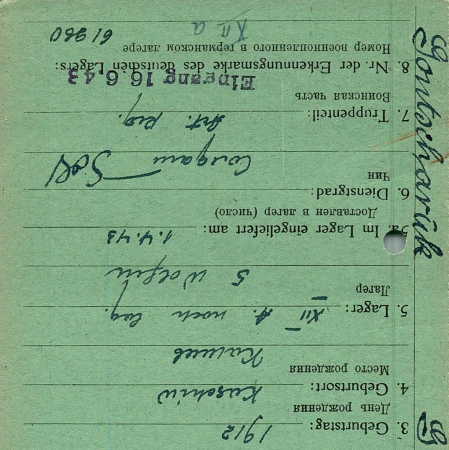 Gontscharuk
G
3. Geburtstag: 1912
День рождения
4. Geburtsort: Kaschiw
Место рождения Кашев
5. Lager: XII A. noch lag.
Лагер
5 Wolfen
5a. Im Lager eingeliefert am: 1.4.43
Доставлен в лагер (число)
6. Dienstgrad: Sol
Чин Солдат
7. Truppenteil: Art. Reg.
Воинская часть
Eingang 16.6.43
8. Nr. der Erkennungsmarke des deutschen Lagers:
Номер военнопленного в германском лагере
61980
XII a